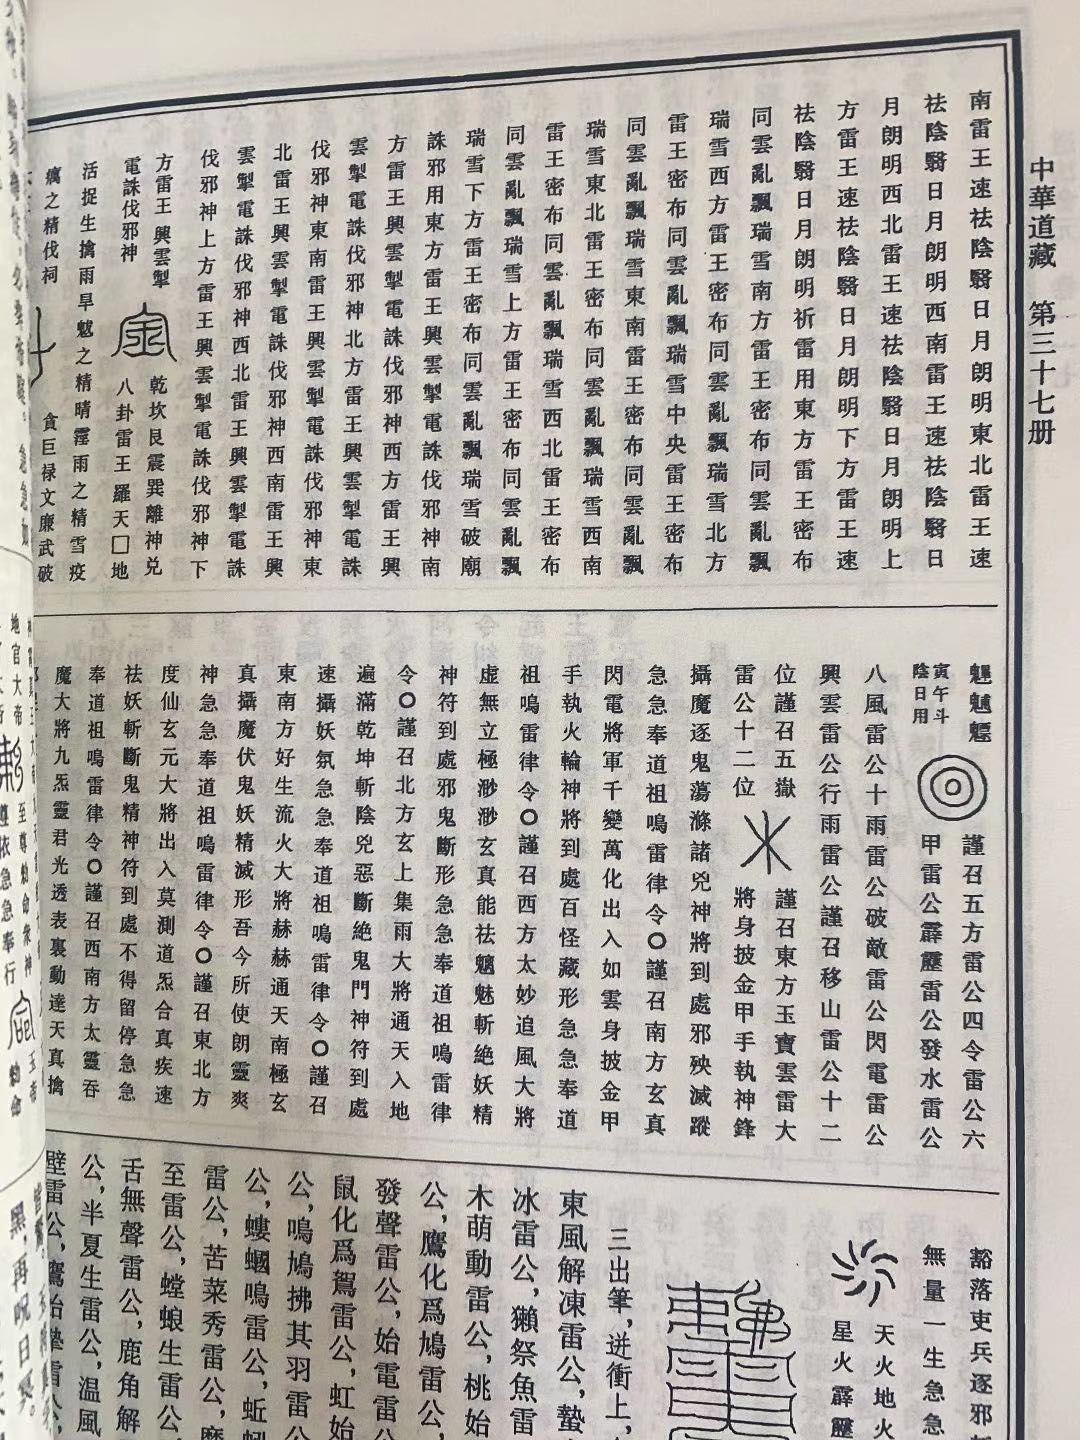 中華道藏 第三十七册
南雷王速祛陰翳日月朗明東北雷王速
祛陰翳日月朗明西南雷王速祛陰翳日
月朗明西北雷王速祛陰翳日月朗明上
方雷王速祛陰翳日月朗明下方雷王速
祛陰翳日月朗明祈雷用東方雷王密布
同雲亂飄瑞雪南方雷王密布同雲亂飄
瑞雪西方雷王密布同雲亂飄瑞雪北方
雷王密布同雲亂飄瑞雪中央雷王密布
同雲亂飄瑞雪東南雷王密布同雲亂飄
瑞雪東北雷王密布同雲亂飄瑞雪西南
雷王密布同雲亂飄瑞雪西北雷王密布
同雲亂飄瑞雪上方雷王密布同雲亂飄
瑞雪下方雷王密布同雲亂飄瑞雪破廟
誅邪用東方雷王興雲掣電誅伐邪神南
方雷王興雲掣電誅伐邪神西方雷王興
雲掣電誅伐邪神北方雷王興雲掣電誅
伐邪神東南雷王興雲掣電誅伐邪神東
北雷王興雲掣電誅伐邪神西南雷王興
雲掣電誅伐邪神西北雷王興雲掣電誅
伐邪神上方雷王興雲掣電誅伐邪神下
方雷王興雲掣
電誅伐邪神
乾坎艮震巽離神兑
八卦雷王羅天□地
活捉生擒雨旱魃之精晴霪雨之精雪疫
癘之精伐祠
貪巨禄文廉武破
寅午斗
陰日用
謹召五方雷公四令雷公六
甲雷公霹靂雷公發水雷公
八風雷公十雨雷公破敵雷公閃電雷公
興雲雷公行雨雷公謹召移山雷公十二
位謹召五嶽
雷公十二位
謹召東方玉寶雲雷大
將身披金甲手執神鋒
攝魔逐鬼蕩滌諸兇神將到處邪殃滅蹤
急急奉道祖鳴雷律令○謹召南方玄真
閃電將軍千變萬化出入如雲身披金甲
手執火輪神將到處百怪藏形急急奉道
祖鳴雷律令○謹召西方太妙追風大將
虛無立極渺渺玄真能祛魑魅斬絶妖精
神符到處邪鬼斷形急急奉道祖鳴雷律
令○謹召北方玄上集雨大將通天入地
遍滿乾坤斬陰兇惡斷絶鬼門神符到處
速攝妖氛急急奉道祖鳴雷律令○謹召
東南方好生流火大將赫赫通天南極玄
真攝魔伏鬼妖精滅形吾今所使朗靈爽
神急急奉道祖鳴雷律令○謹召東北方
度仙玄元大將出入莫測道炁合真疾速
祛妖斬斷鬼精神符到處不得留停急急
奉道祖鳴雷律令○謹召西南方太靈吞
魔大將九炁靈君光透表裏動達天真擒
豁落吏兵逐邪
無量一生急急
天火地火
星火霹靂
三出筆，迸衝上，
東風解凍雷公，蟄
冰雷公，獺祭魚雷
木萌動雷公，桃始
公，鷹化爲鳩雷公，
發聲雷公，始電雷公
鼠化爲鴽雷公，虹始
公，鳴鳩拂其羽雷公
公，螻蟈鳴雷公，蚯蚓
雷公，苦菜秀雷公，
至雷公，螳螂生雷公
舌無聲雷公，鹿角解
公，半夏生雷公，温風
壁雷公，鷹始摯雷公，